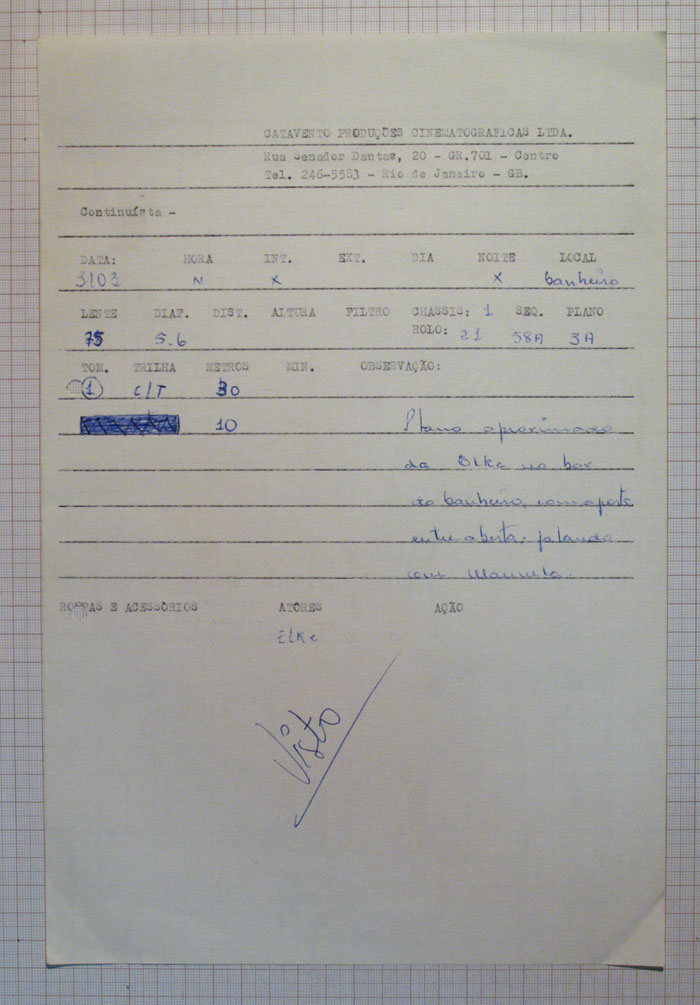 CATAVENTO PRODUÇÕES CINEMATOGRAFICAS LTDA.
Rua Senador Dantas, 20 - GR.701 - Centro
Tel. 246-5583 - Rio de Janeiro - GB.
Continuísta -
DATA: HORA INT. EXT. DIA NOITE LOCAL
3103 N X X banheiro
LENTE DIAF. DIST. ALTURA FILTRO CHASSIS: 1 SEQ. PLANO
75 5.6 ROLO: 21 58A 3A
TOM. TRILHA METROS MIN. OBSERVAÇÃO:
1 C/T 30
10 Plano aproximado
da Elke no box
do banheiro, com a porta
entre aberta, falando
com Manuela.
ROUPAS E ACESSÓRIOS ATORES AÇÃO
Elke
Visto